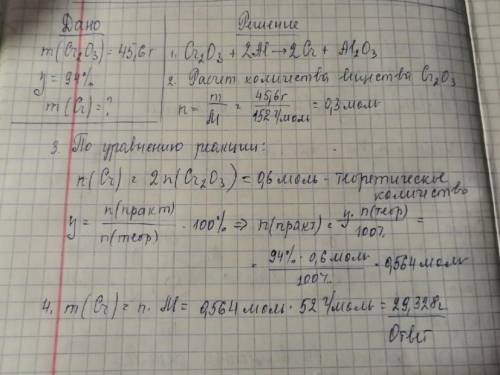 Дано
Решение
m(Cr₂O₃) = 45,6 г
y = 94%
m(Cr) = ?
1. Cr₂O₃ + 2Al → 2Cr + Al₂O₃
2. Расчет количества вещества Cr₂O₃
n = m/M = 45,6 г/152 г/моль = 0,3 моль
3. По уравнению реакции:
n(Cr) = 2n(Cr₂O₃) = 0,6 моль - теоретическое
количество
y = n(практ)/n(теор) · 100% ⇒ n(практ) = y · n(теор)/100% =
= 94% · 0,6 моль/100% · 0,564 моль
4. m(Cr) = n · M = 0,564 моль · 52 г/моль = 29,328 г
Ответ